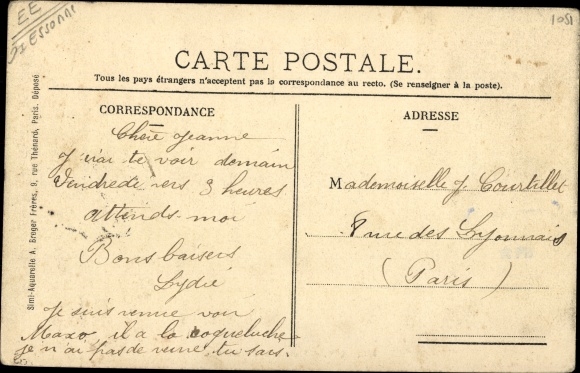 EE
91 ESSONNE
1051
CARTE POSTALE.
Tous les pays étrangers n'acceptent pas la correspondance au recto. (Se renseigner à la poste).
CORRESPONDANCE
Chère Jeanne
J'irai te voir demain
Vendredi vers 3 heures
attends-moi
Bons baisers
Lydie
Je suis venue voir
Maxo, il a la coqueluche
je n'ai pas de veine, tu sais.
ADRESSE
Mademoiselle J. Courtillet
8 rue des Lyonnais
(Paris)
Simi-Aquarelle A. Breger Frères, 9, rue Thénard, Paris. Déposé